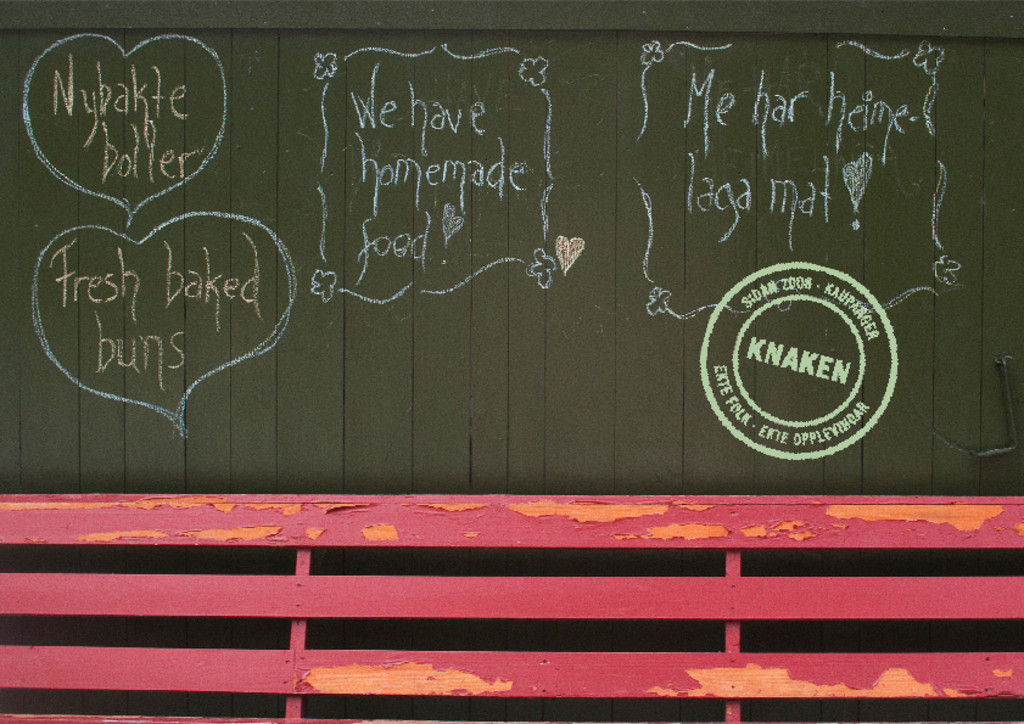 Nybakte
boller
Fresh baked
buns
We have
homemade
food!
Me har heime-
laga mat!
SIDAN 2008 · KAUPANGER
KNAKEN
EKTE FOLK · EKTE OPPLEVINGAR